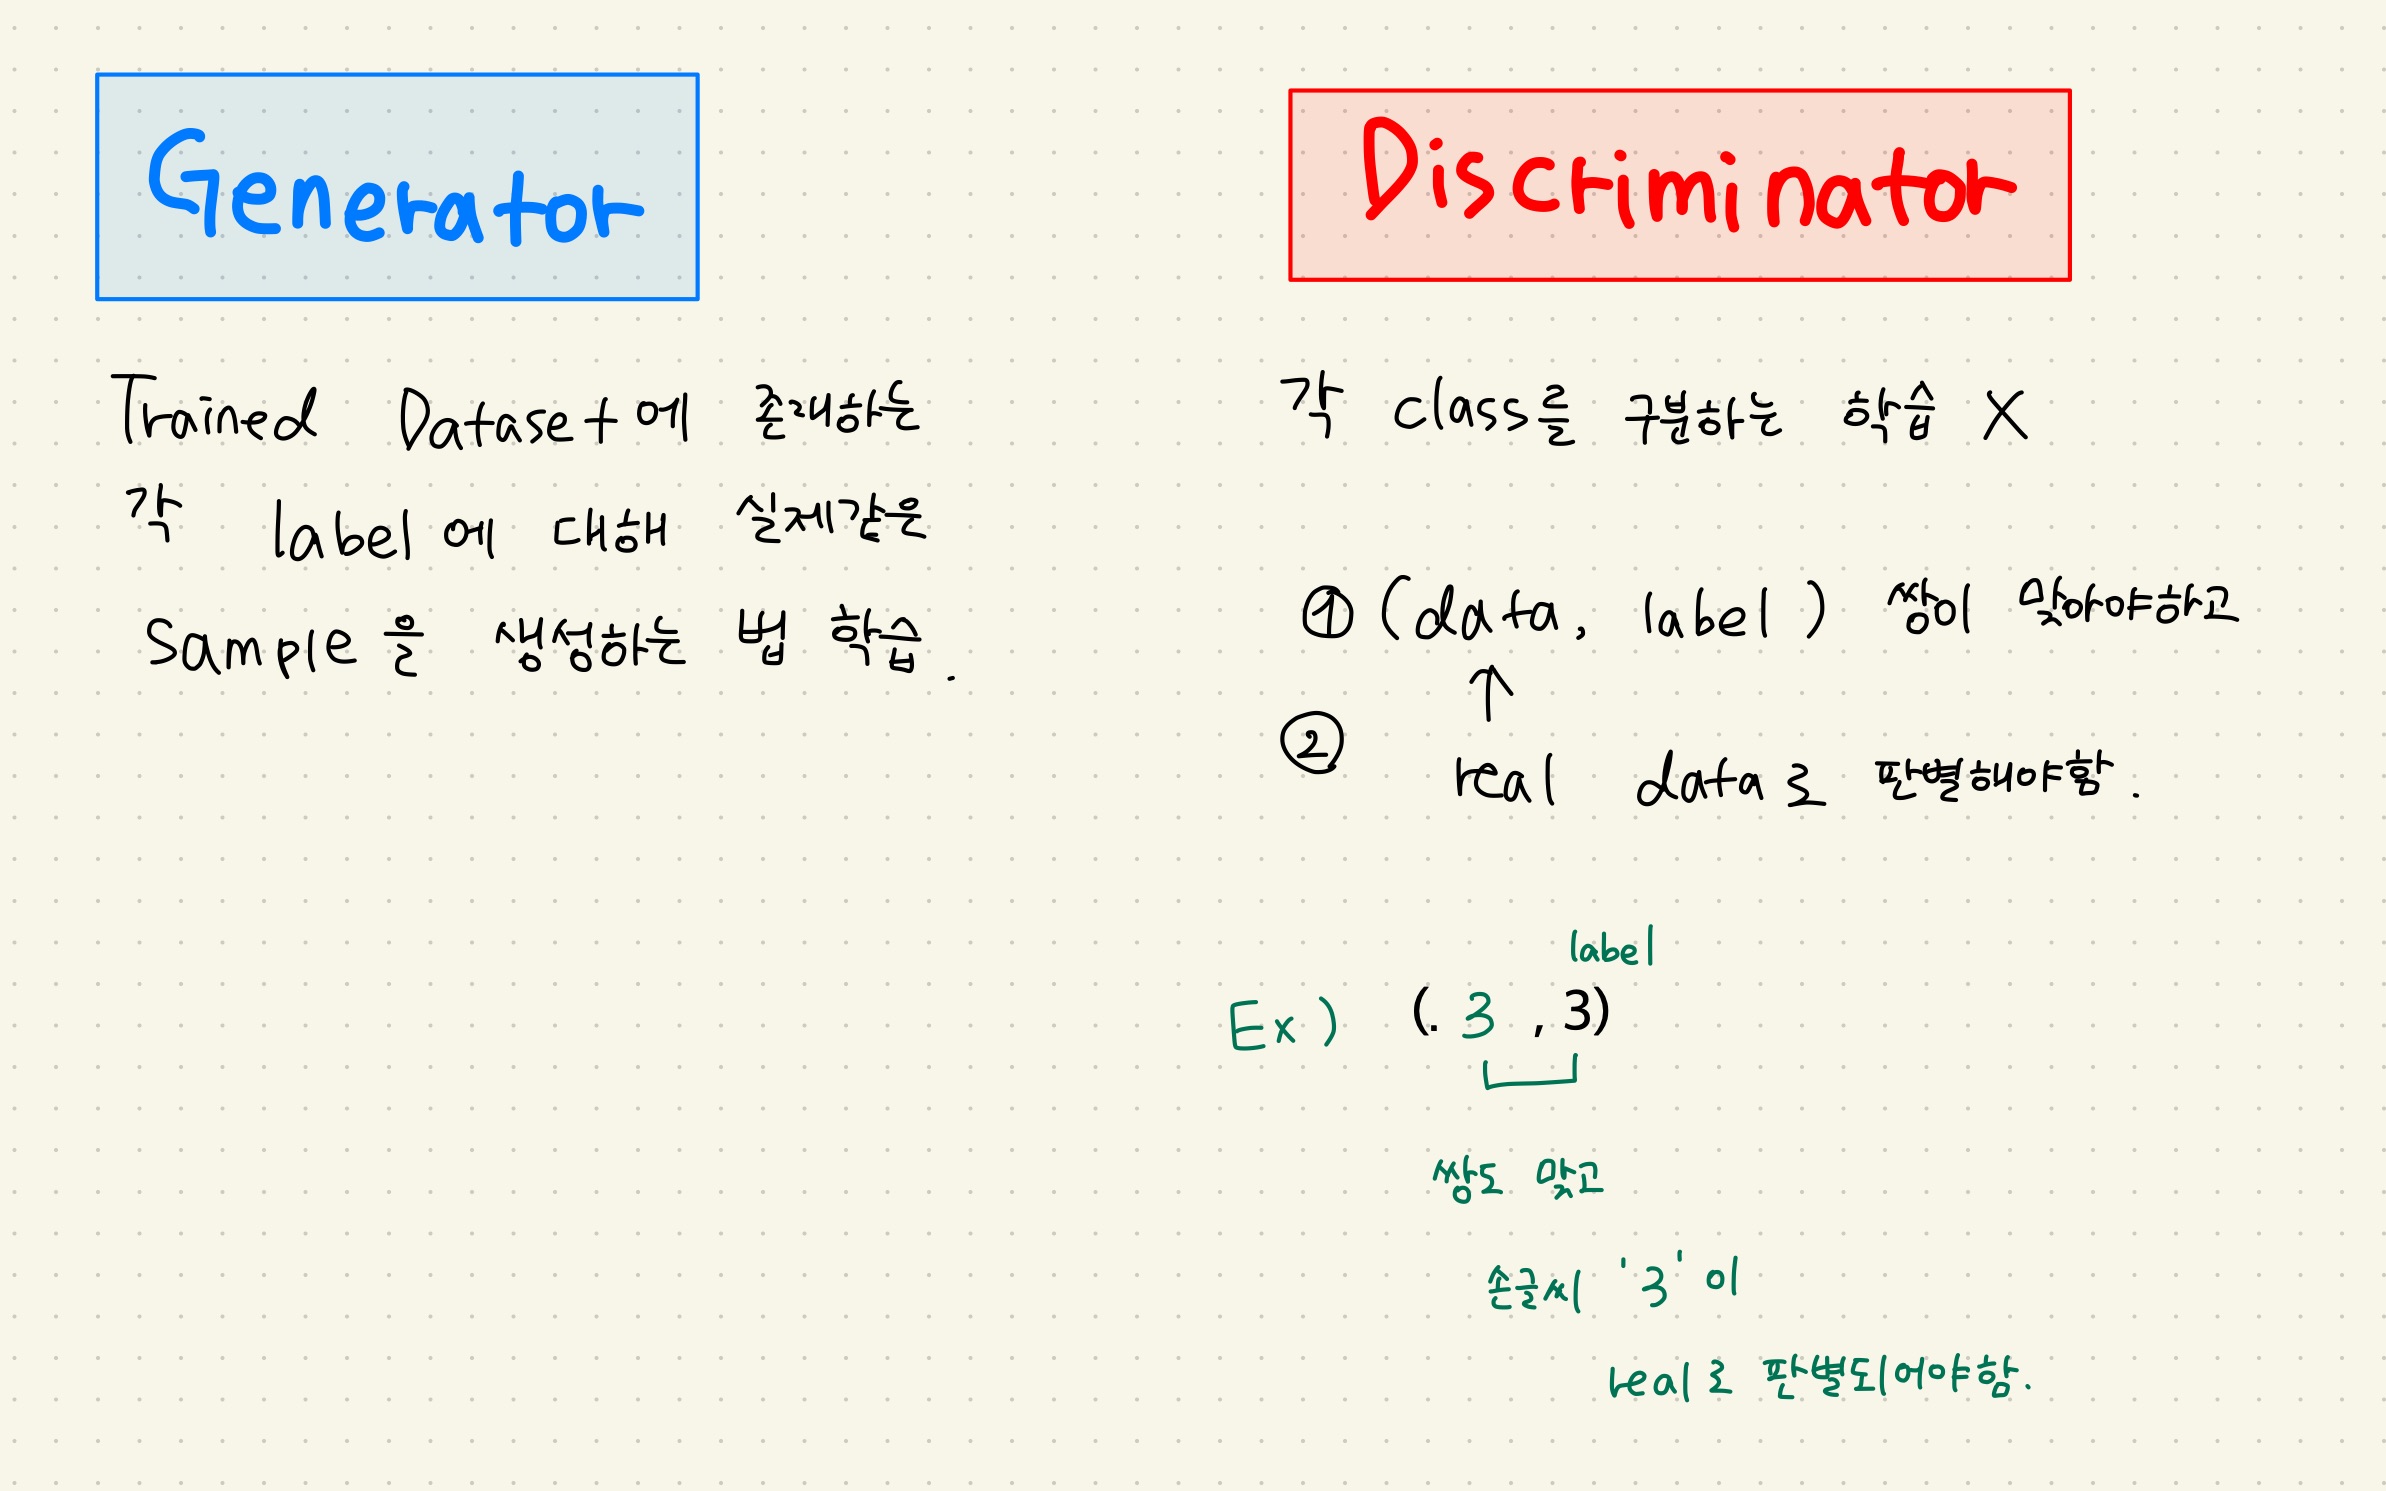 Generator
Trained Dataset에 존재하는
각 label에 대해 실제같은
Sample을 생성하는 법 학습.
Discriminator
각 class를 구분하는 학습 X
① (data, label) 쌍이 맞아야하고
↑
② real data로 판별해야함.
label
Ex) (. 3 , 3)
쌍도 맞고
손글씨 '3'이
real로 판별되어야함.